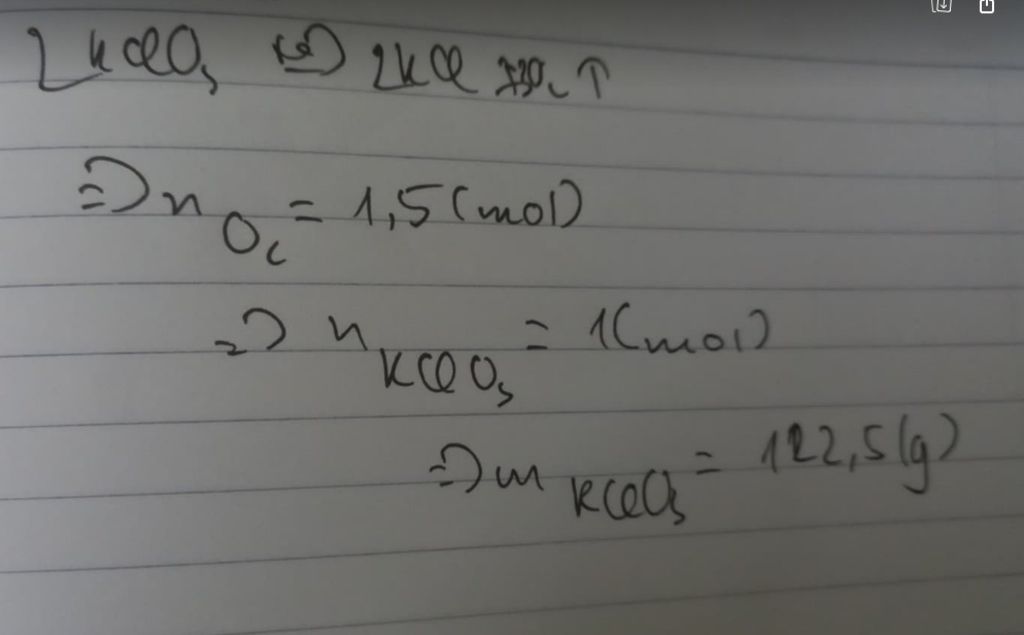 2KClO₃ (t°)→ 2KCl + 3O₂ ↑
⇒ n O₂ = 1,5 (mol)
⇒ n KClO₃ = 1 (mol)
⇒ m KClO₃ = 122,5 (g)